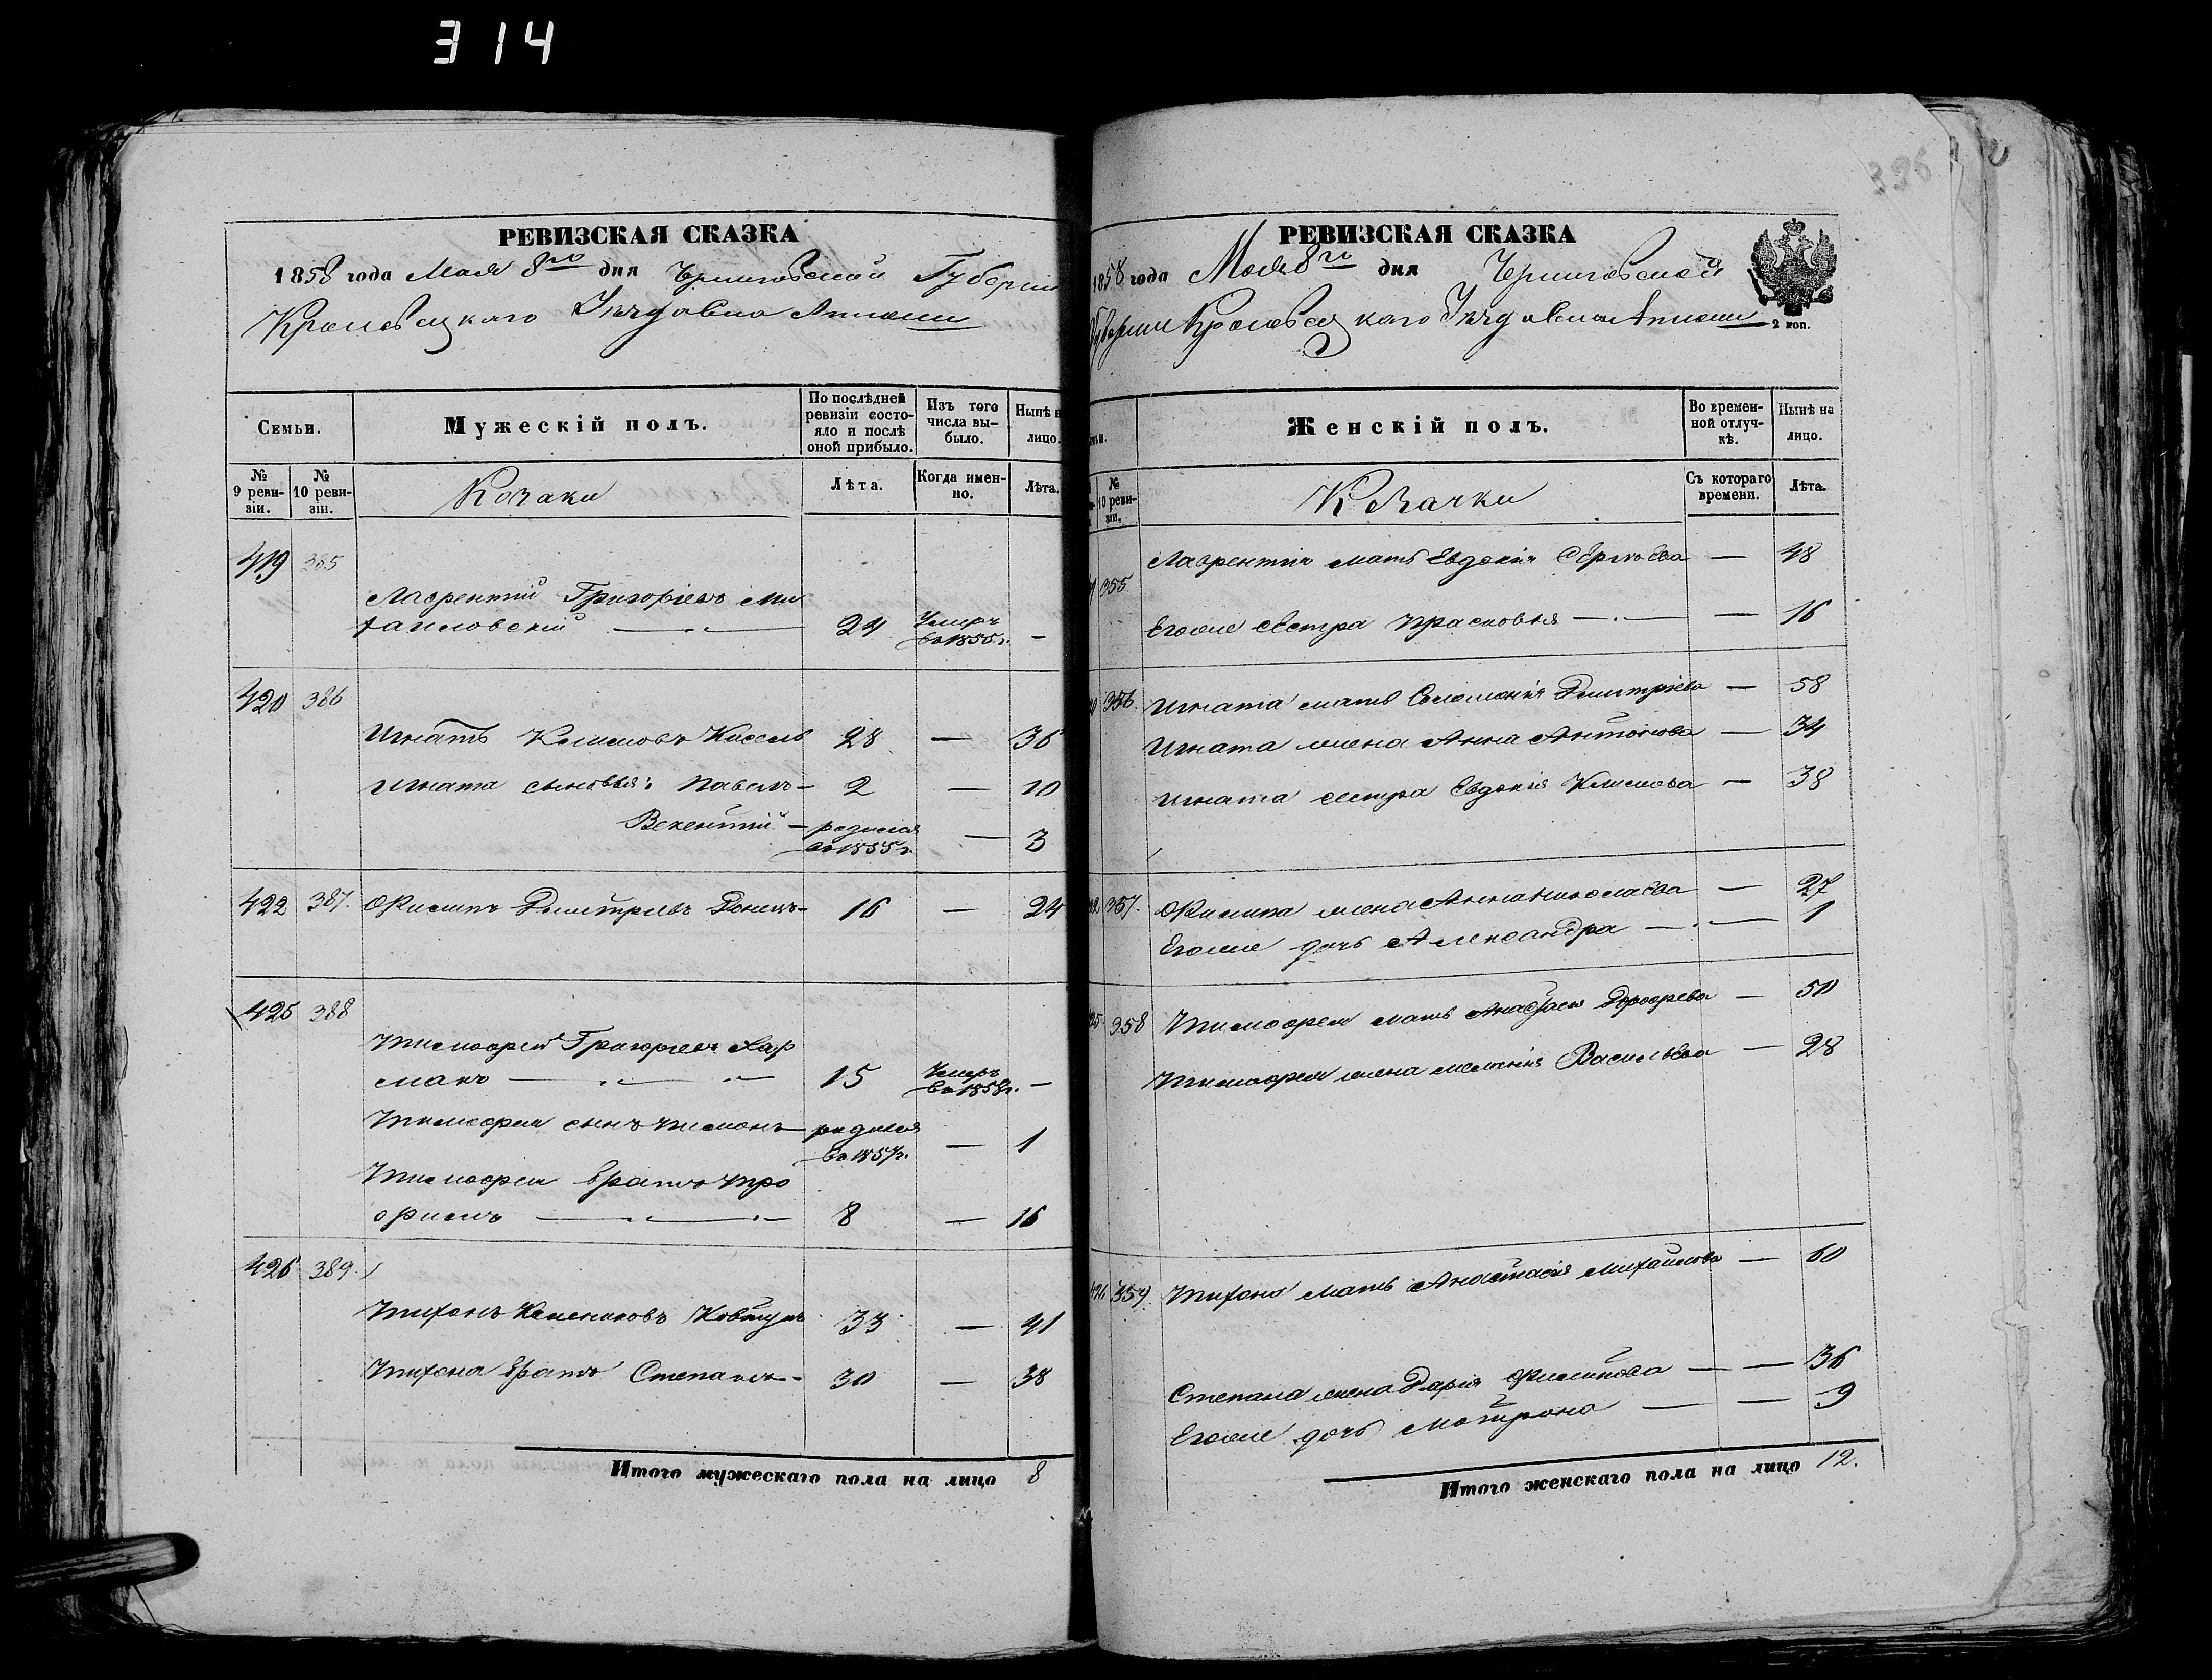 314
РЕВИЗСКАЯ СКАЗКА
1858 года Мая 8го дня Черниговской Губерніи
Кролевецкаго Уѣзда
Семьи.
Мужескій полъ.
По послѣдней ревизіи состояло и послѣ оной прибыло.
Изъ того числа выбыло.
Нынѣ на лицо.
№ 9 ревизіи.
№ 10 ревизіи.
Козаки
Лѣта.
Когда именно.
Лѣта.
419 385
Лаврентій Григоріевъ Ми
хайловскій 24 Умеръ въ 1855 г. —
420 386
Игнатъ Климовъ Кисель 28 — 36
Игната сыновья: Павелъ — 2 — 10
Викентій — родился въ 1855 г. — 3
422 387 Филипъ Дмитріевъ Донецъ — 16 — 24
425 388
Тимофей Григорьевъ Хар
макъ 15 Умеръ въ 1858 г. —
Тимофея сынъ родился въ 1857 г. — 1
Тимофея братъ Тро
фимъ 8 — 16
426 389
Тихонъ Ковтунъ 33 — 41
Тихона братъ Степанъ — 30 — 38
Итого мужескаго пола на лицо 8
396
РЕВИЗСКАЯ СКАЗКА
1858 года Мая 8го дня Черниговской
Губерніи Кролевецкаго Уѣзда
2 коп.
Женскій полъ.
Во временной отлучкѣ.
Нынѣ на лицо.
№ 10 ревизіи.
Козачки
Съ котораго времени.
Лѣта.
355
Лаврентія мать Евдокія Сергѣева — 48
Егоже сестра Прасковья — 16
356 Игната мать Соломонія Дмитріева — 58
Игната жена Анна Антонова — 34
Игната сестра Евдокія Климова — 38
357 Филипа жена Анна Николаева — 27
Егоже дочь Александра — 1
358 Тимофея мать Дорофеева — 50
Тимофея жена Меланія Васильева — 28
359 Тихона мать Анастасія Михайлова — 60
Степана жена Дарія Филипова — 36
Егоже дочь Матрона — 9
Итого женскаго пола на лицо 12.